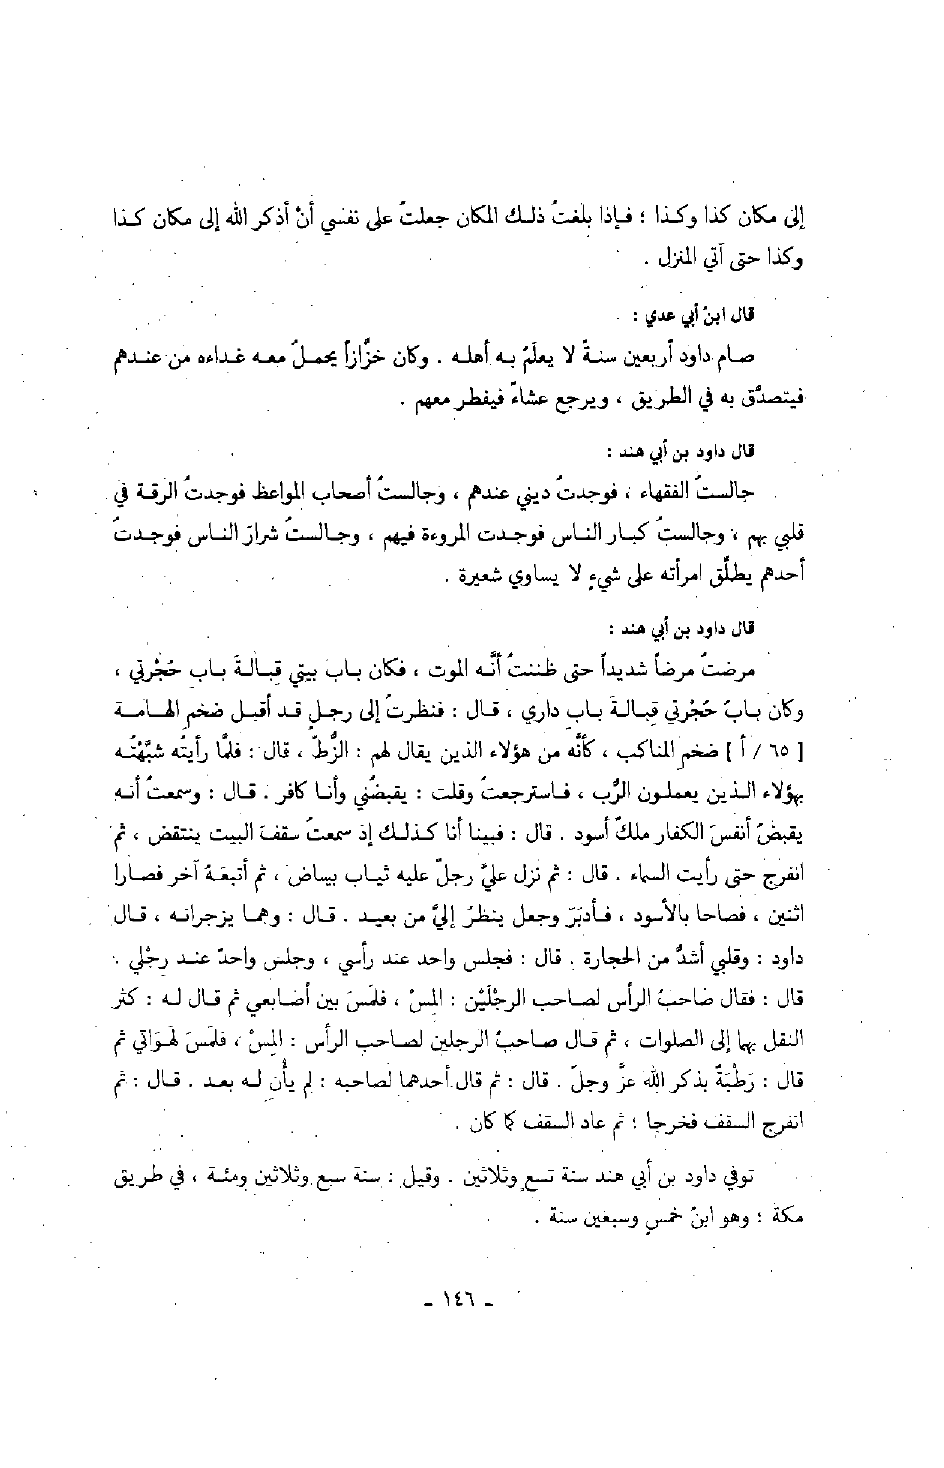 إلى مكان كذا وكذا ؛ فإذا بلغتُ ذلك المكان جعلتُ على نفسي أنْ أذكر الله إلى مكان كذا
وكذا حتى آتي المنزل .
قال ابنُ أبي عدي :
صام داود أربعين سنةً لا يعلَمُ به أهله . وكان خزَّازاً يحملُ معه غداءه من عندهم
فيتصدَّق به في الطريق ، ويرجع عشاءً فيفطر معهم .
قال داود بن أبي هند :
جالستُ الفقهاء ، فوجدتُ ديني عندهم ، وجالستُ أصحاب المواعظ فوجدتُ الرقة في
قلبي بهم ، وجالستُ كبار الناس فوجدت المروءة فيهم ، وجالستُ شرارَ الناس فوجدتُ
أحدهم يطلِّق امرأته على شيءٍ لا يساوي شعيرة .
قال داود بن أبي هند :
مرضتُ مرضاً شديداً حتى ظننتُ أنَّه الموت ، فكان باب بيتي قبالةَ باب حُجْرتي ،
وكان بابُ حُجْرتي قبالةَ باب داري ، قال : فنظرتُ إلى رجلٍ قد أقبل ضخم الهامة
[ ٦٥ / أ ] ضخم المناكب ، كأنَّه من هؤلاء الذين يقال لهم : الزُّطّ ، قال : فلمَّا رأيتُه شبَّهْتُه
بهؤلاء الذين يعملون الرُّب ، فاسترجعتُ وقلت : يقبضُني وأنا كافر . قال : وسمعتُ أنه
يقبضُ أنفسَ الكفار ملكٌ أسود . قال : فبينا أنا كذلك إذ سمعتُ سقفَ البيت ينتقض ، ثم
انفرج حتى رأيت السماء . قال : ثم نزل عليَّ رجلٌ عليه ثياب بياض ، ثم أتبعَهُ آخر فصارا
اثنين ، فصاحا بالأسود ، فأدبَرَ وجعل ينظرُ إليَّ من بعيد . قال : وهما يزجرانه ، قال
داود : وقلبي أشدُّ من الحجارة . قال : فجلس واحد عند رأسي ، وجلس واحدٌ عند رِجْلي .
قال : فقال صاحبُ الرأس لصاحب الرجْلَيْن : المسْ ، فلمَسَ بين أصابعي ثم قال له : كثر
النقل بهما إلى الصلوات ، ثم قال صاحبُ الرجلين لصاحب الرأس : المِسْ ، فلمَسَ لَهَوَاتي ثم
قال : رَطْبَةٌ بذكر الله عزَّ وجلّ . قال : ثم قال أحدهما لصاحبه : لم يأْنِ له بعد . قال : ثم
انفرج السقف فخرجا ؛ ثم عاد السقف كما كان .
توفي داود بن أبي هند سنة تسعٍ وثلاثين . وقيل : سنة سبع وثلاثين ومئة ، في طريق
مكة ؛ وهو ابنُ خمسٍ وسبعين سنة .
- ١٤٦ -